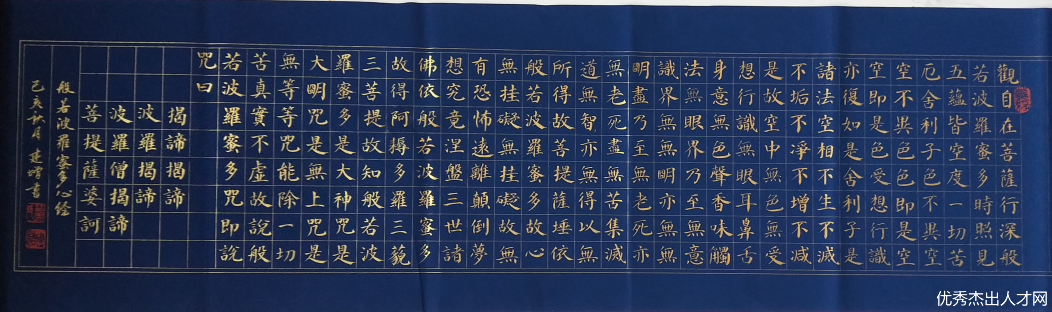 觀自在菩薩行深般
若波羅蜜多時照見
五蘊皆空度一切苦
厄舍利子色不異空
空不異色色即是空
空即是色受想行識
亦復如是舍利子是
諸法空相不生不滅
不垢不淨不增不減
是故空中無色無受
想行識無眼耳鼻舌
身意無色聲香味觸
法無眼界乃至無意
識界無無明亦無無
明盡乃至無老死亦
無老死盡無苦集滅
道無智亦無得以無
所得故菩提薩埵依
般若波羅蜜多故心
無挂礙無挂礙故無
有恐怖遠離顛倒夢
想究竟涅盤三世諸
佛依般若波羅蜜多
故得阿耨多羅三藐
三菩提故知般若波
羅蜜多是大神咒是
大明咒是無上咒是
無等等咒能除一切
苦真實不虛故說般
若波羅蜜多咒即說
咒曰
揭諦揭諦
波羅揭諦
波羅僧揭諦
菩提薩婆訶
般若波羅蜜多心經
己亥秋月建增書
优秀杰出人才网